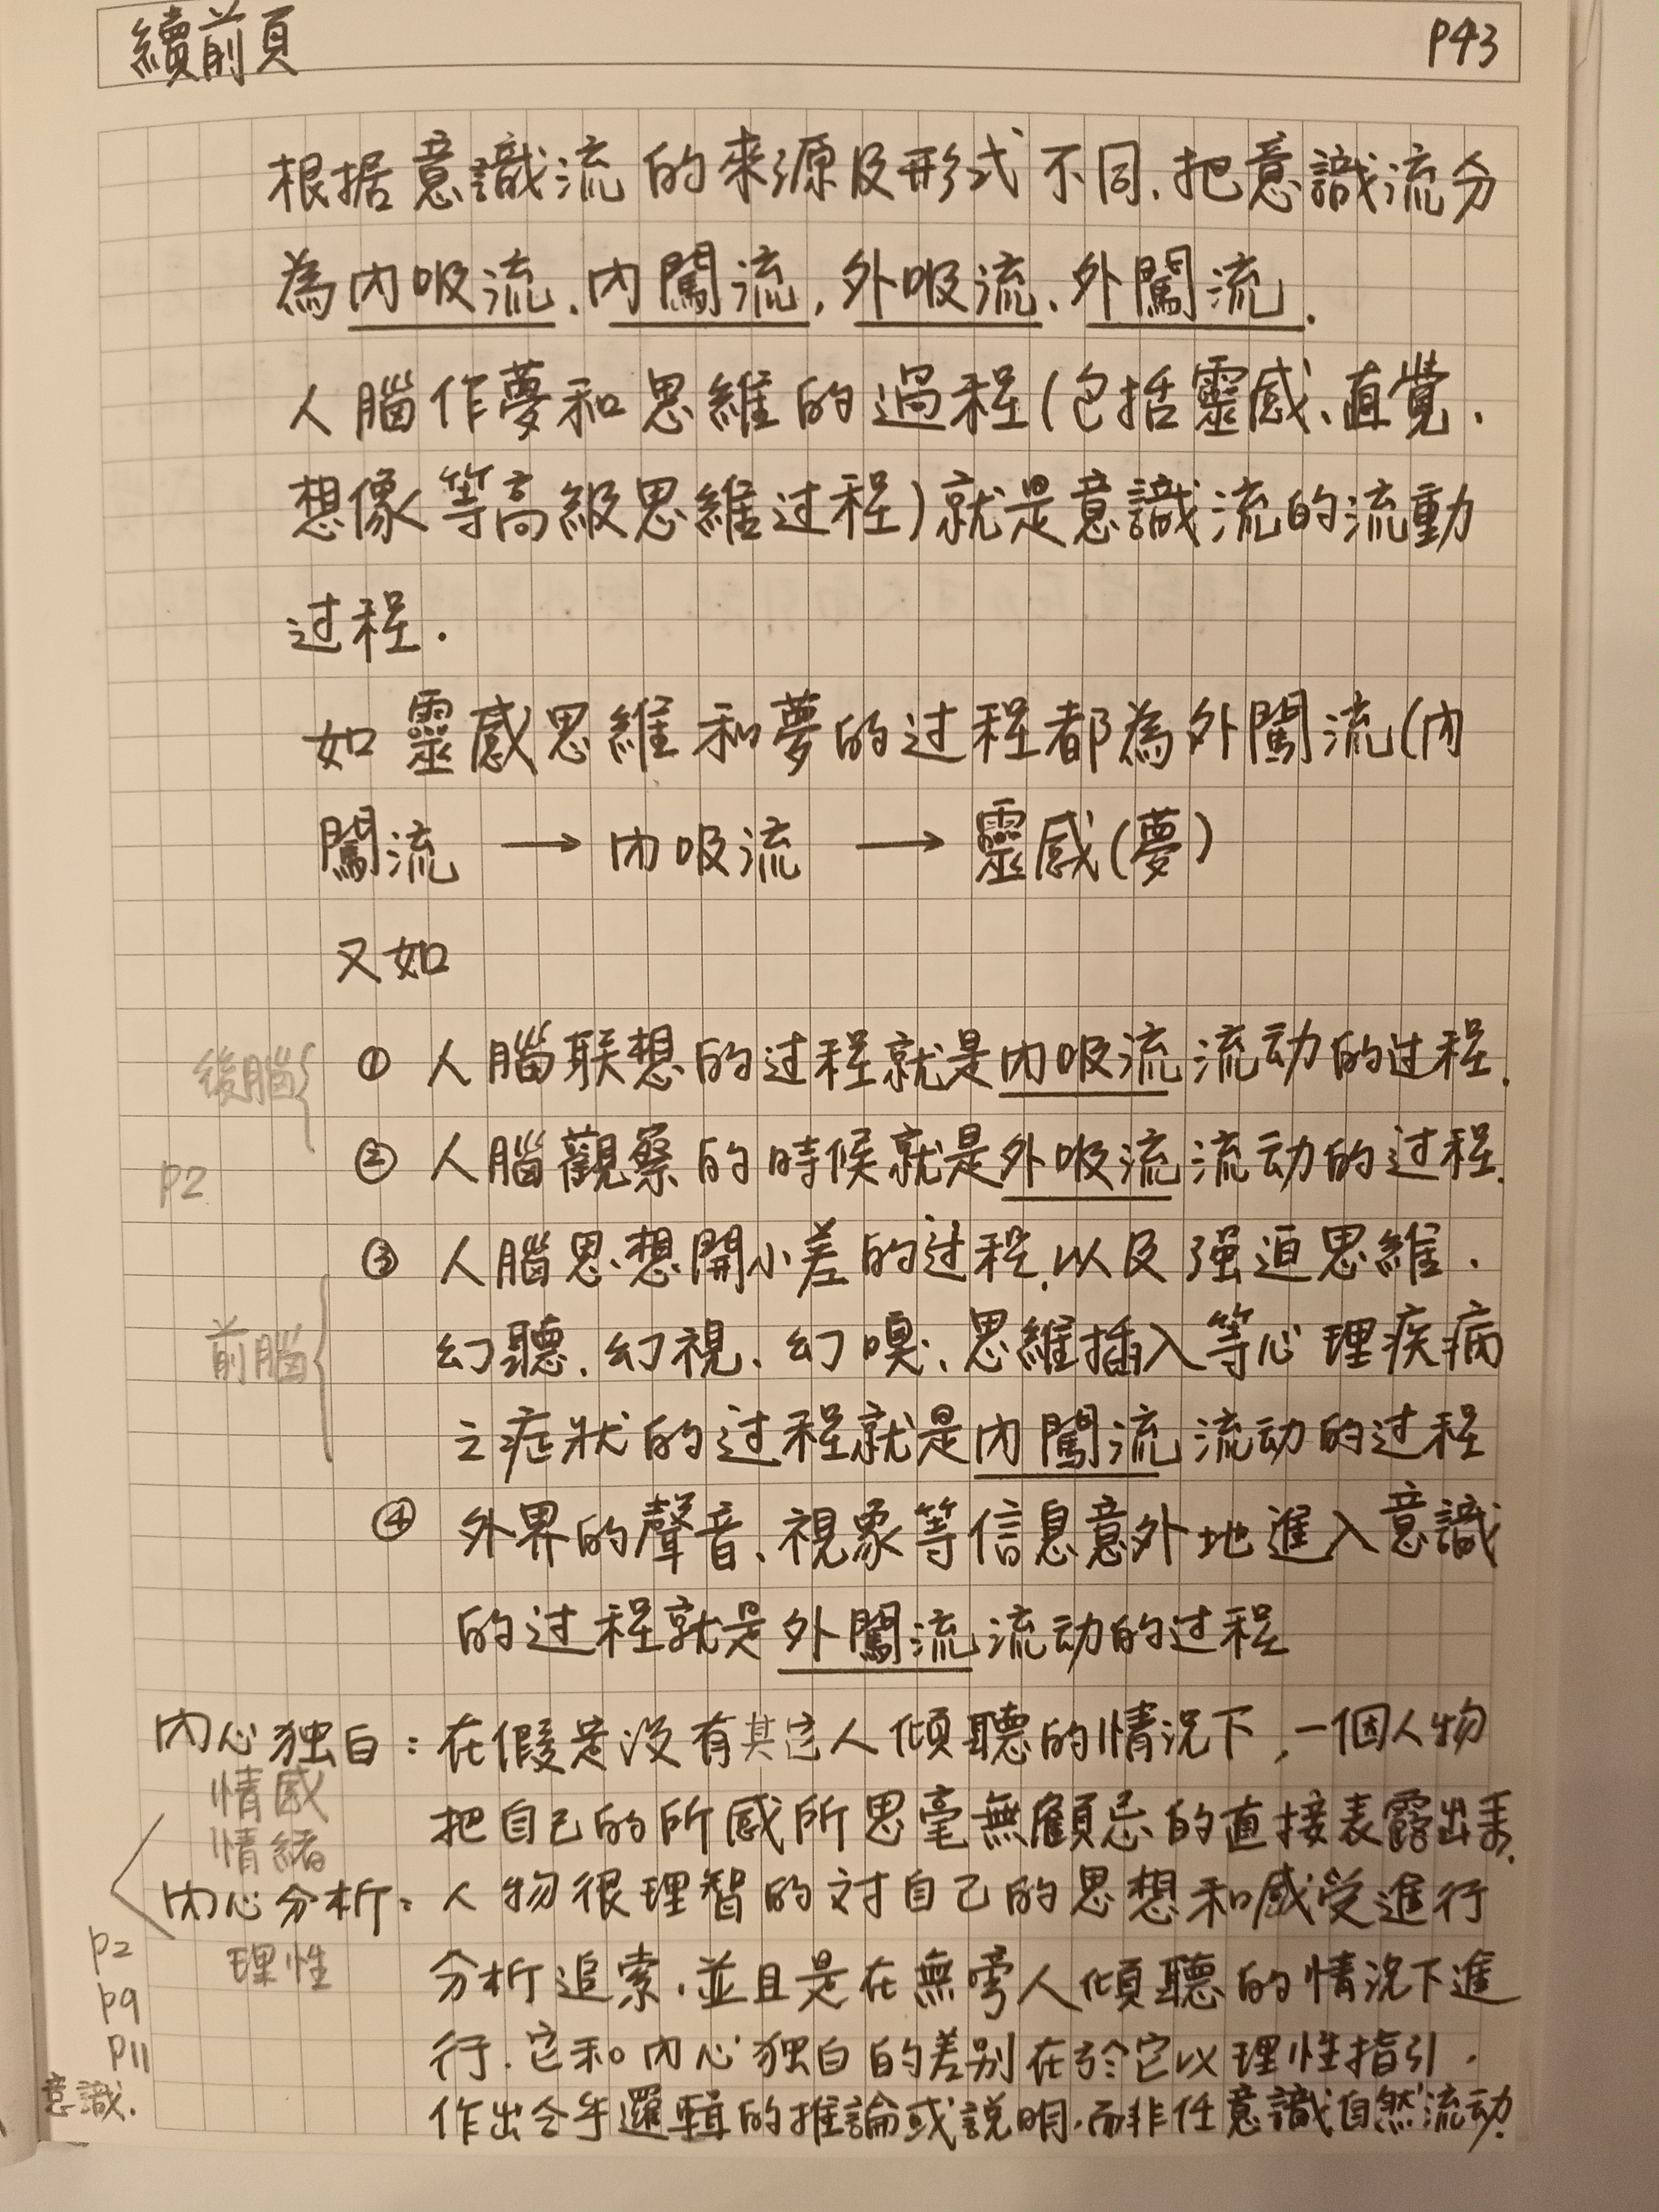 續前頁
P43
根据意識流的來源及形式不同.把意識流分
為內吸流.內闖流,外吸流、外闖流.
人腦作夢和思維的過程(包括靈感、直覺、
想像等高級思維过程)就是意識流的流動
过程.
如靈感思維和夢的过程都為外闖流(內
闖流 → 內吸流 → 靈感(夢)
又如
後腦
① 人腦联想的过程就是內吸流流动的过程.
② 人腦觀察的時候就是外吸流流动的过程.
P2
③ 人腦思想開小差的过程.以及强迫思維、
前腦
幻聽.幻視、幻嗅、思維插入等心理疾病
之症狀的过程就是內闖流流动的过程
④ 外界的聲音、視象等信息意外地進入意識
的过程就是外闖流流动的过程
內心独白:在假定沒有其它人傾聽的情況下,一個人物
情感
把自己的所感所思毫無顧忌的直接表露出来.
情緒
內心分析:人物很理智的对自己的思想和感受進行
P2
理性
分析追索.並且是在無旁人傾聽的情況下進
P9
行.它和內心独白的差别在於它以理性指引.
P11
意識.
作出合乎邏輯的推論或説明.而非任意識自然流动.